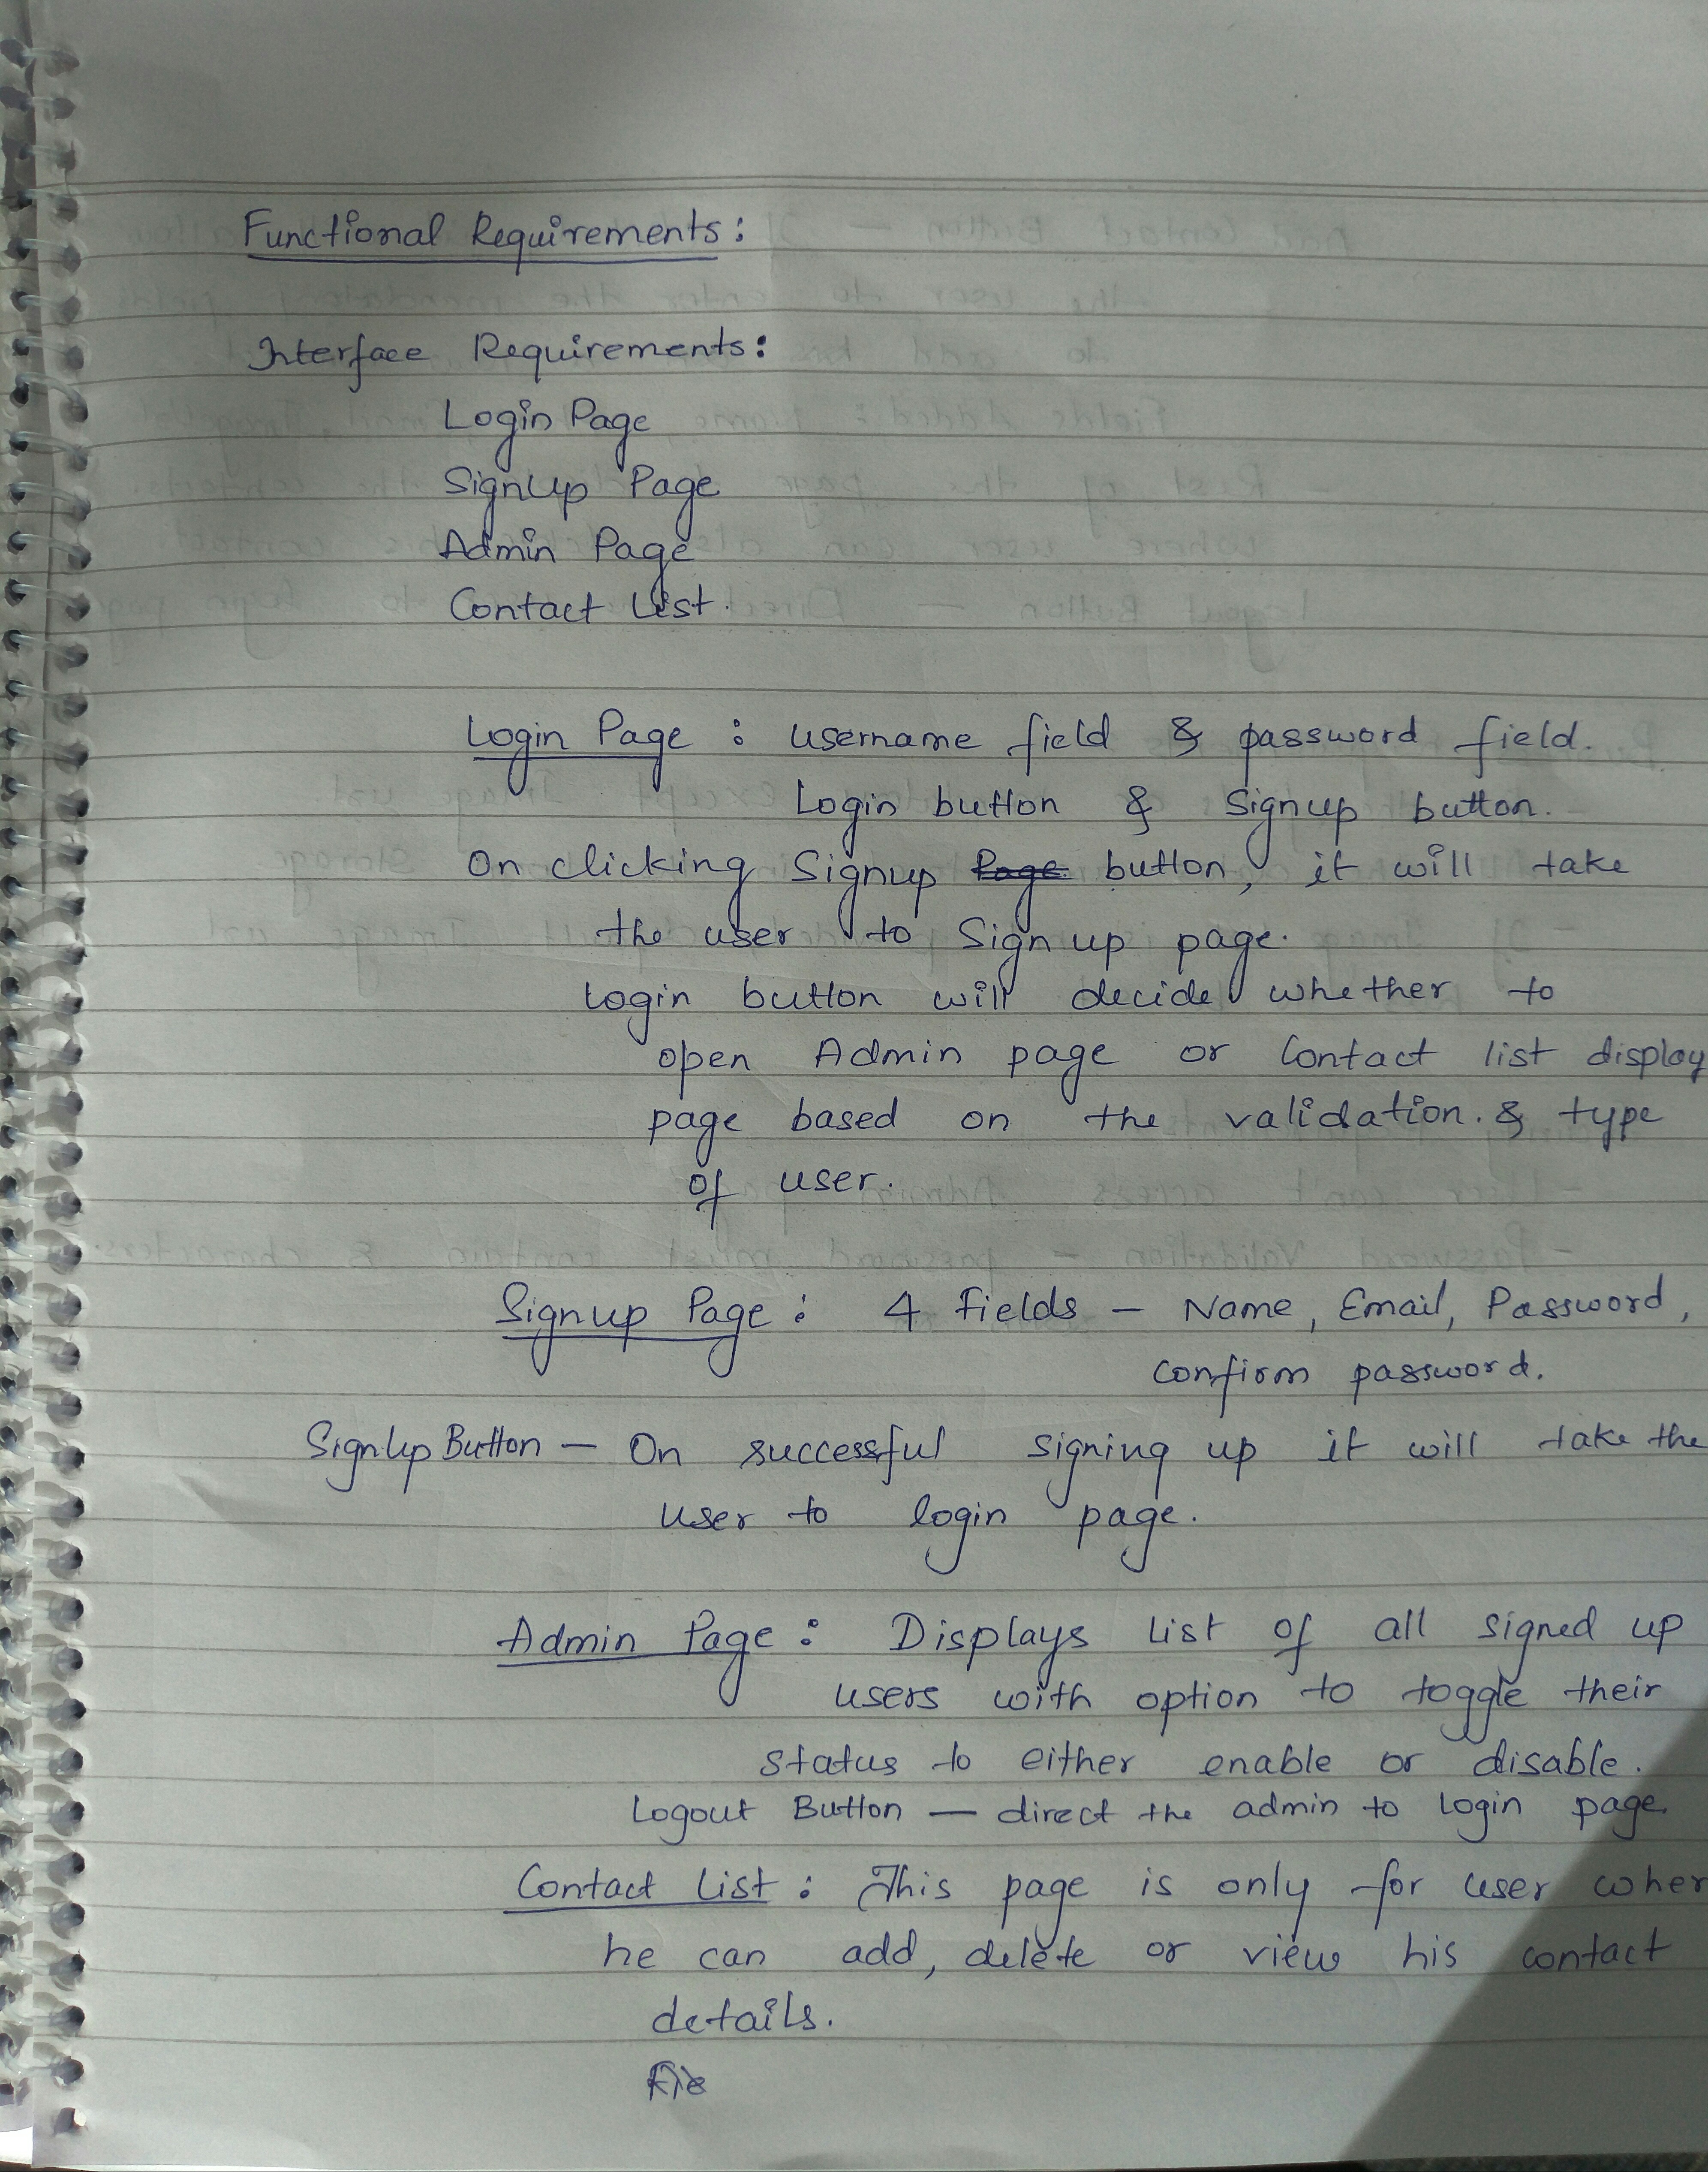 Functional Requirements:
Interface Requirements:
Login Page
SignUp Page
Admin Page
Contact List.
Login Page : username field & password field.
Login button & Signup button.
On clicking Signup Page button, it will take
the user to Sign up page.
Login button will decide whether to
open Admin page or Contact list display
page based on the validation. & type
of user.
Signup Page : 4 Fields - Name, Email, Password,
confirm password.
SignUp Button - On successful signing up it will take the
user to login page.
Admin Page : Displays list of all signed up
users with option to toggle their
status to either enable or disable.
Logout Button - direct the admin to login page.
Contact List : This page is only for user wher
he can add, delete or view his contact
details.